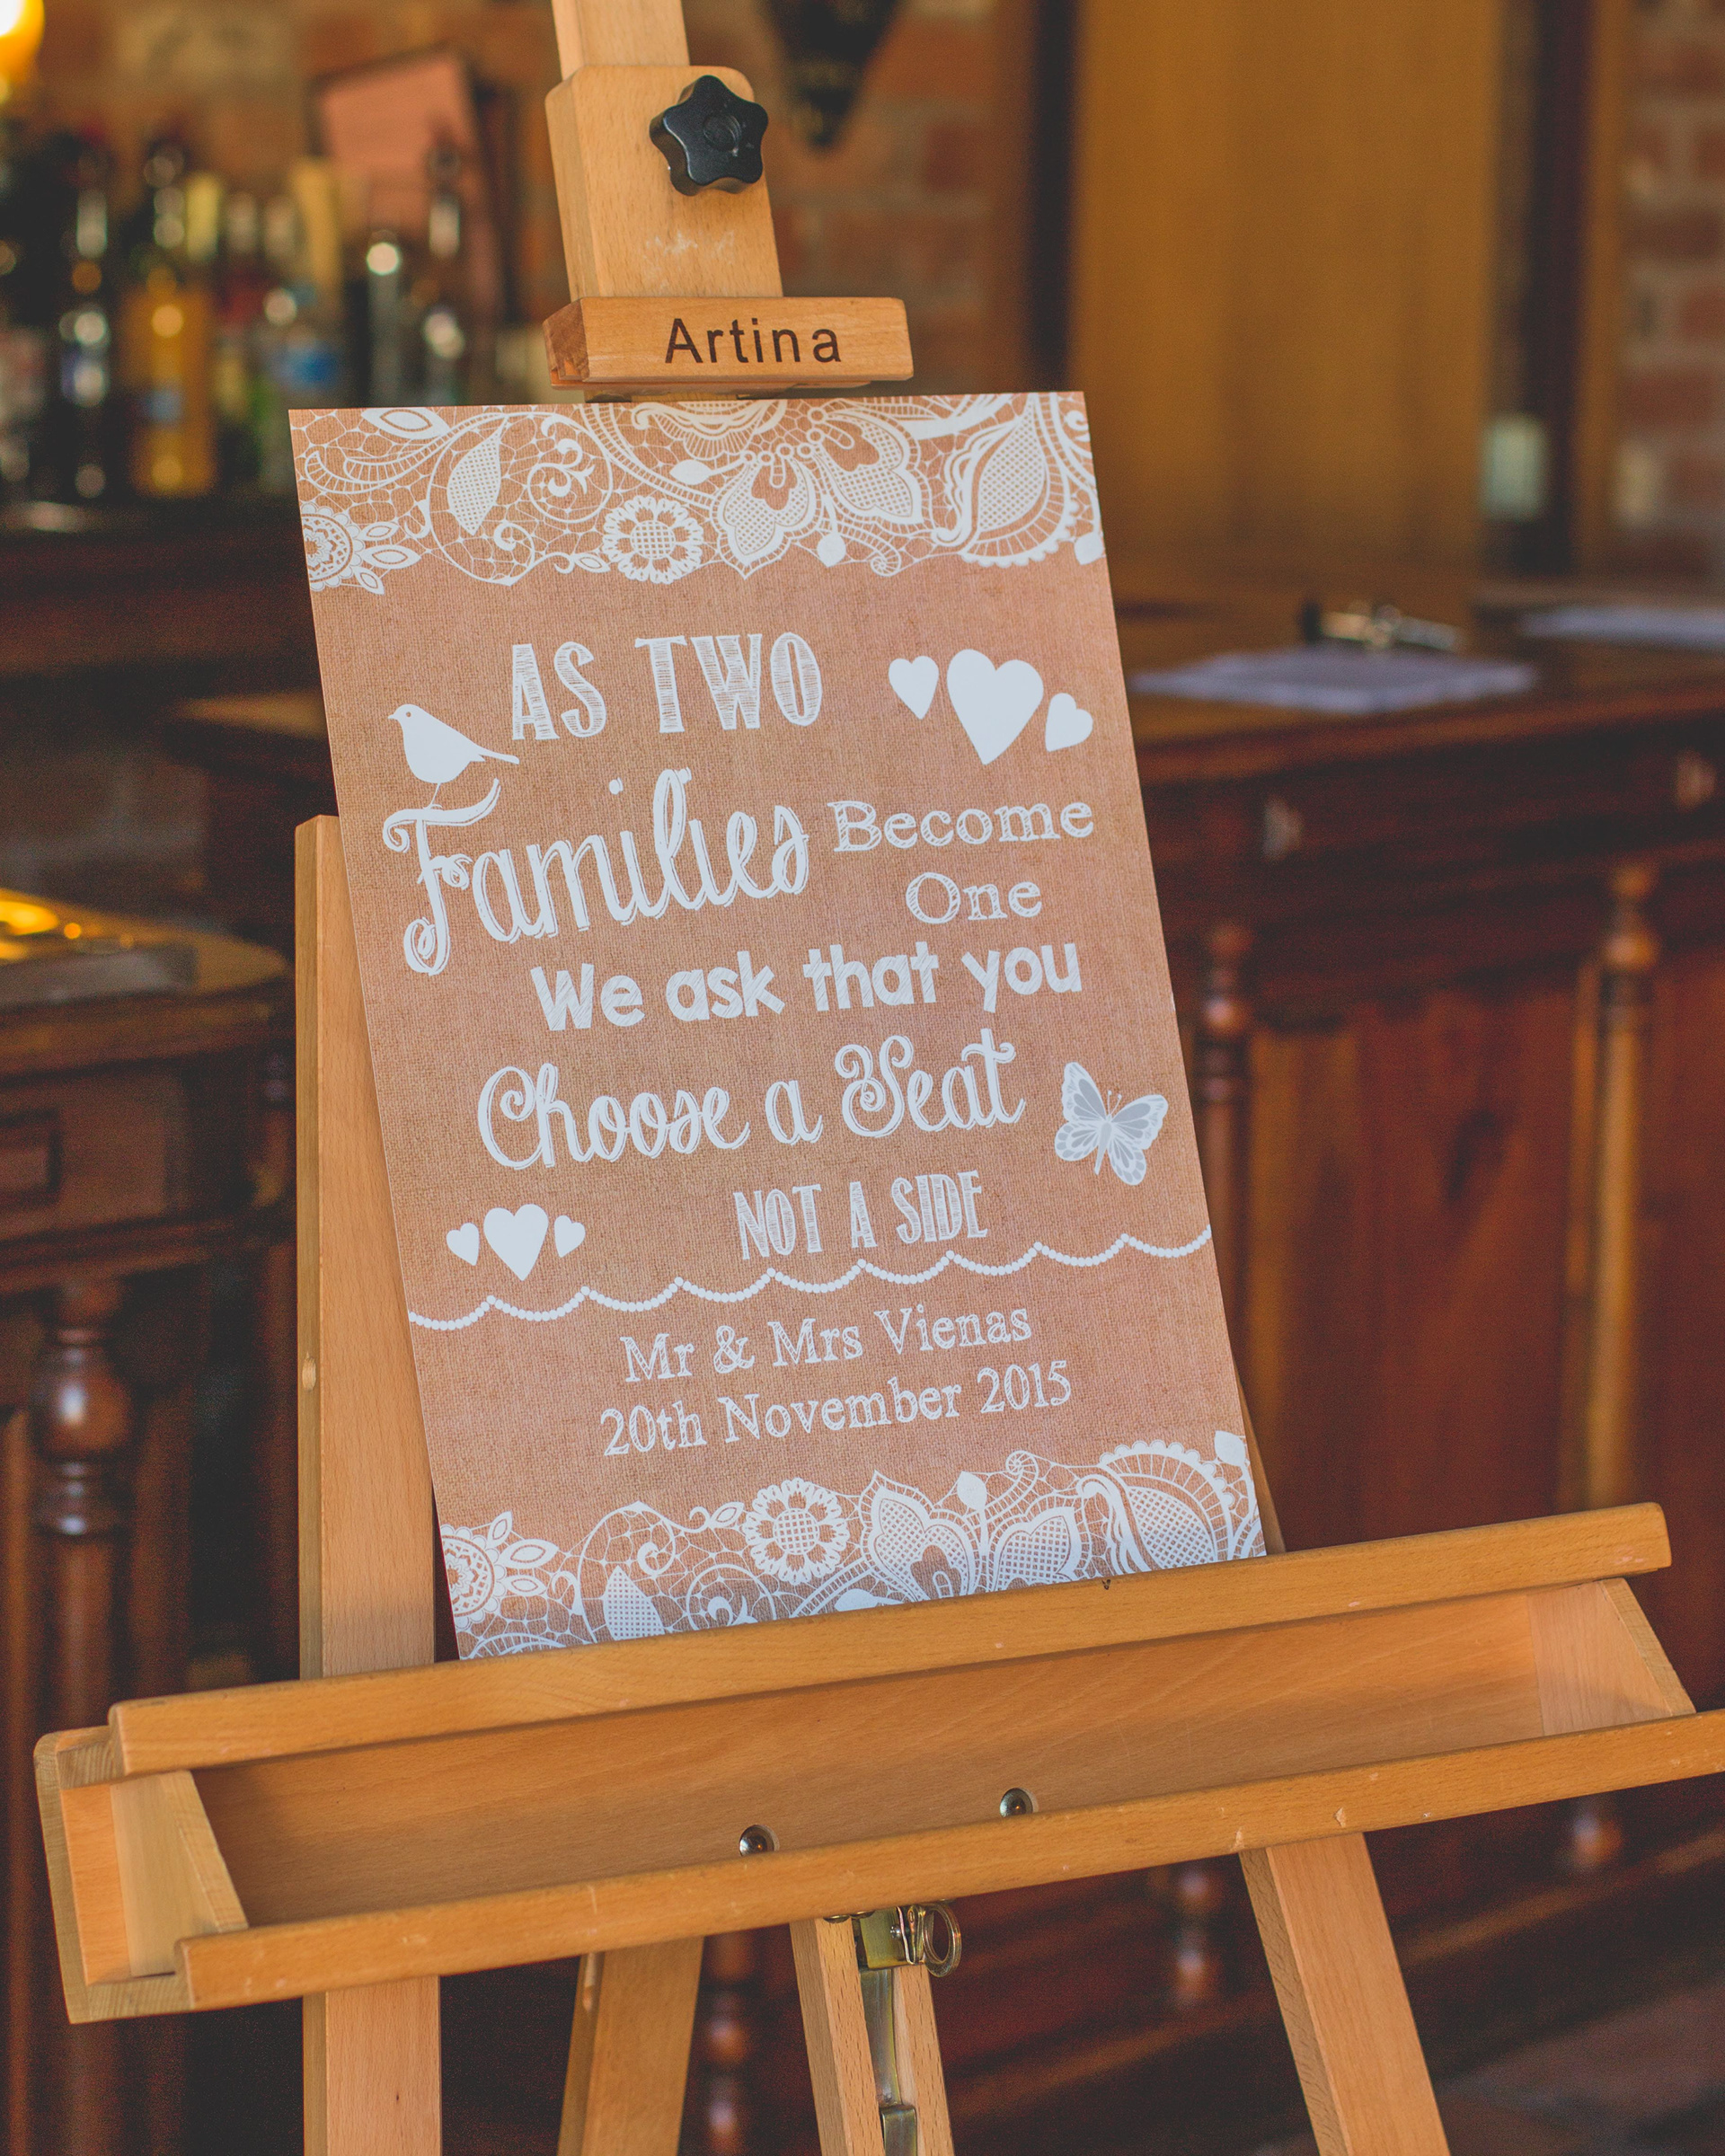 Artina
AS TWO
Families Become
One
We ask that you
Choose a Seat
NOT A SIDE
Mr & Mrs Vienas
20th November 2015